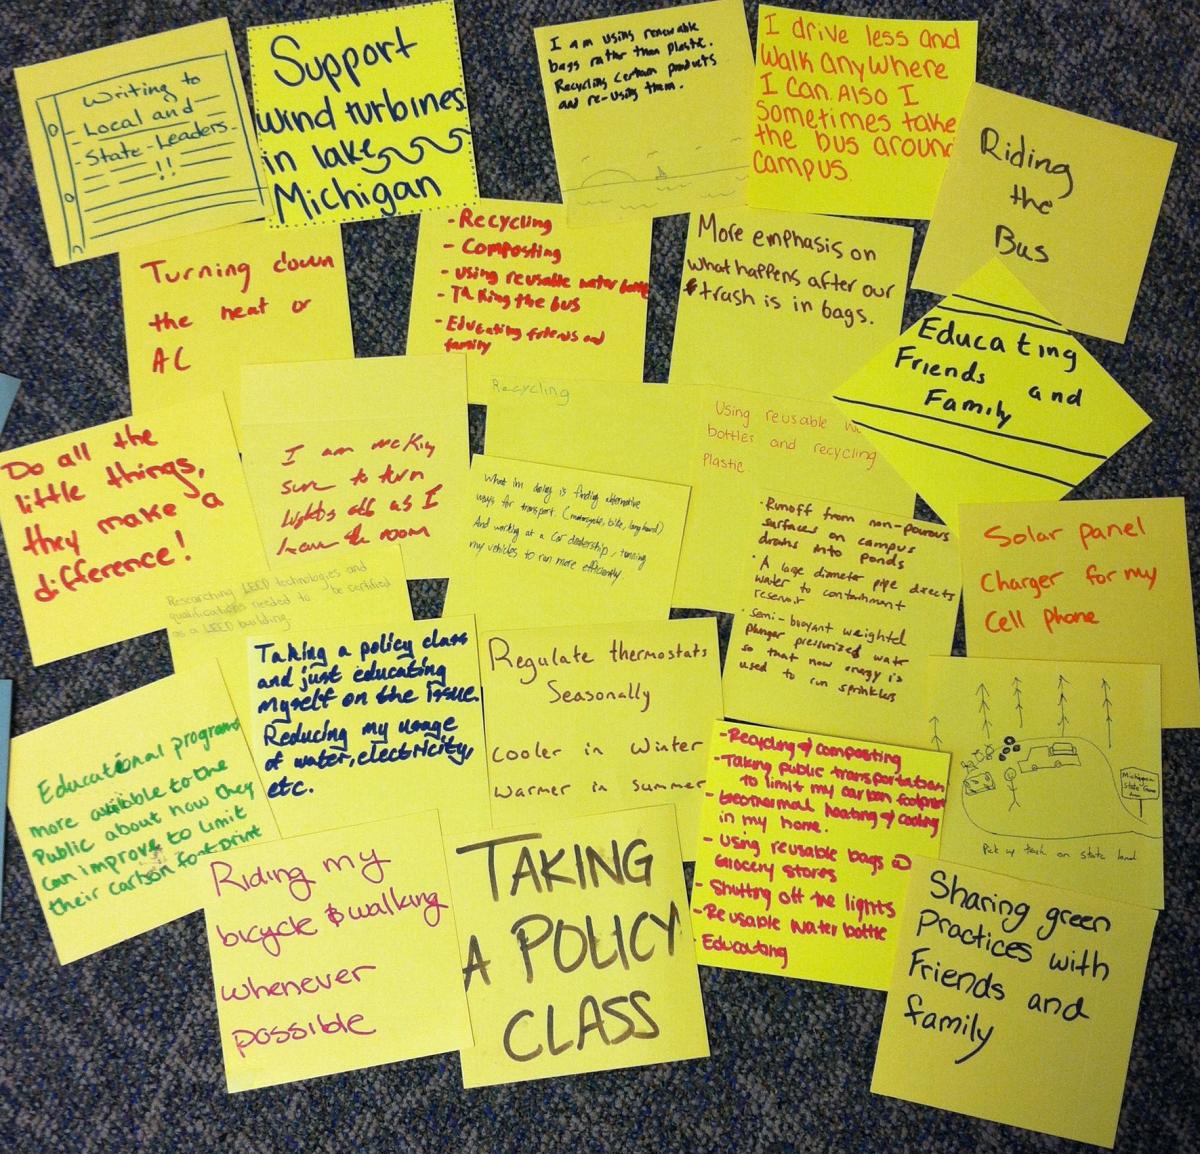 Writing to
Local and
State Leaders
!!
Support
wind turbines
in lake
Michigan
I am using renewable
bags rather than plastic.
Recycling certain products
and re-using them.
I drive less and
walk anywhere
I can. Also I
sometimes take
the bus around
campus.
Riding
the
Bus
Turning down
the heat or
AC
- Recycling
- Composting
- using reusable water bottle
- Taking the bus
- Educating friends and
family
More emphasis on
what happens after our
trash is in bags.
Educating
Friends and
Family
Do all the
little things,
they make a
difference!
I am making
sure to turn
lights off as I
leave the room
Recycling
Using reusable
bottles and recycling
Plastic
What im doing is finding alternative
ways for transport. (motorcycle, bike, longboard)
And working at a car dealership, tunning
my vehicles to run more efficiently
• Runoff from non-porous
surfaces on campus
drains into ponds
• A large diameter pipe directs
water to containment
reservoir
• Semi-buoyant weighted
plunger pressurized water
so that now energy is
used to run sprinklers
Solar panel
Charger for my
Cell phone
Researching LEED technologies and
qualifications needed to be certified
as a LEED building.
Taking a policy class
and just educating
myself on the issue.
Reducing my usage
of water, electricity,
etc.
Regulate thermostats
Seasonally
cooler in winter
warmer in summer
Educational programs
more available to the
Public about how they
can improve to limit
their carbon footprint
- Recycling & composting
- Taking public transportation
to limit my carbon footprint
- Geothermal heating & cooling
in my home.
- Using reusable bags @
Grocery stores
- Shutting off the lights
- Reusable water bottle
- Educating
Michigan
State Game
Area
Pick up trash on state land
Riding my
bicycle & walking
whenever
possible
TAKING
A POLICY
CLASS
Sharing green
Practices with
Friends and
family